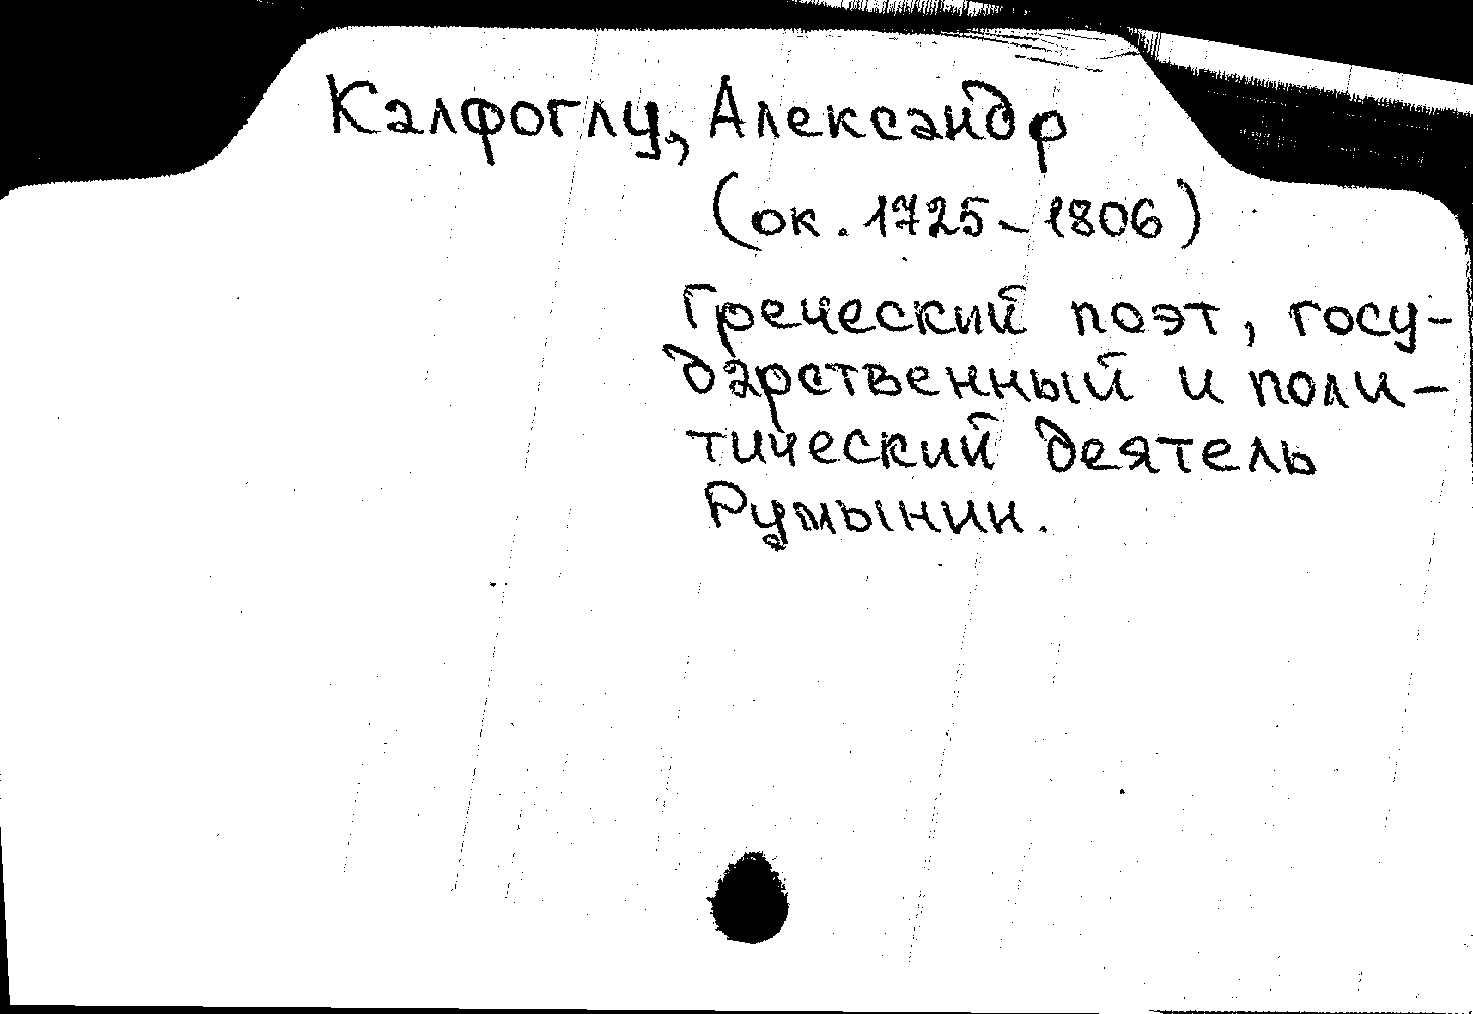 Калфоглу, Александр
(ок. 1725-1806)
Греческий поэт, госу-
дарственный и поли-
тический деятель
Румынии.